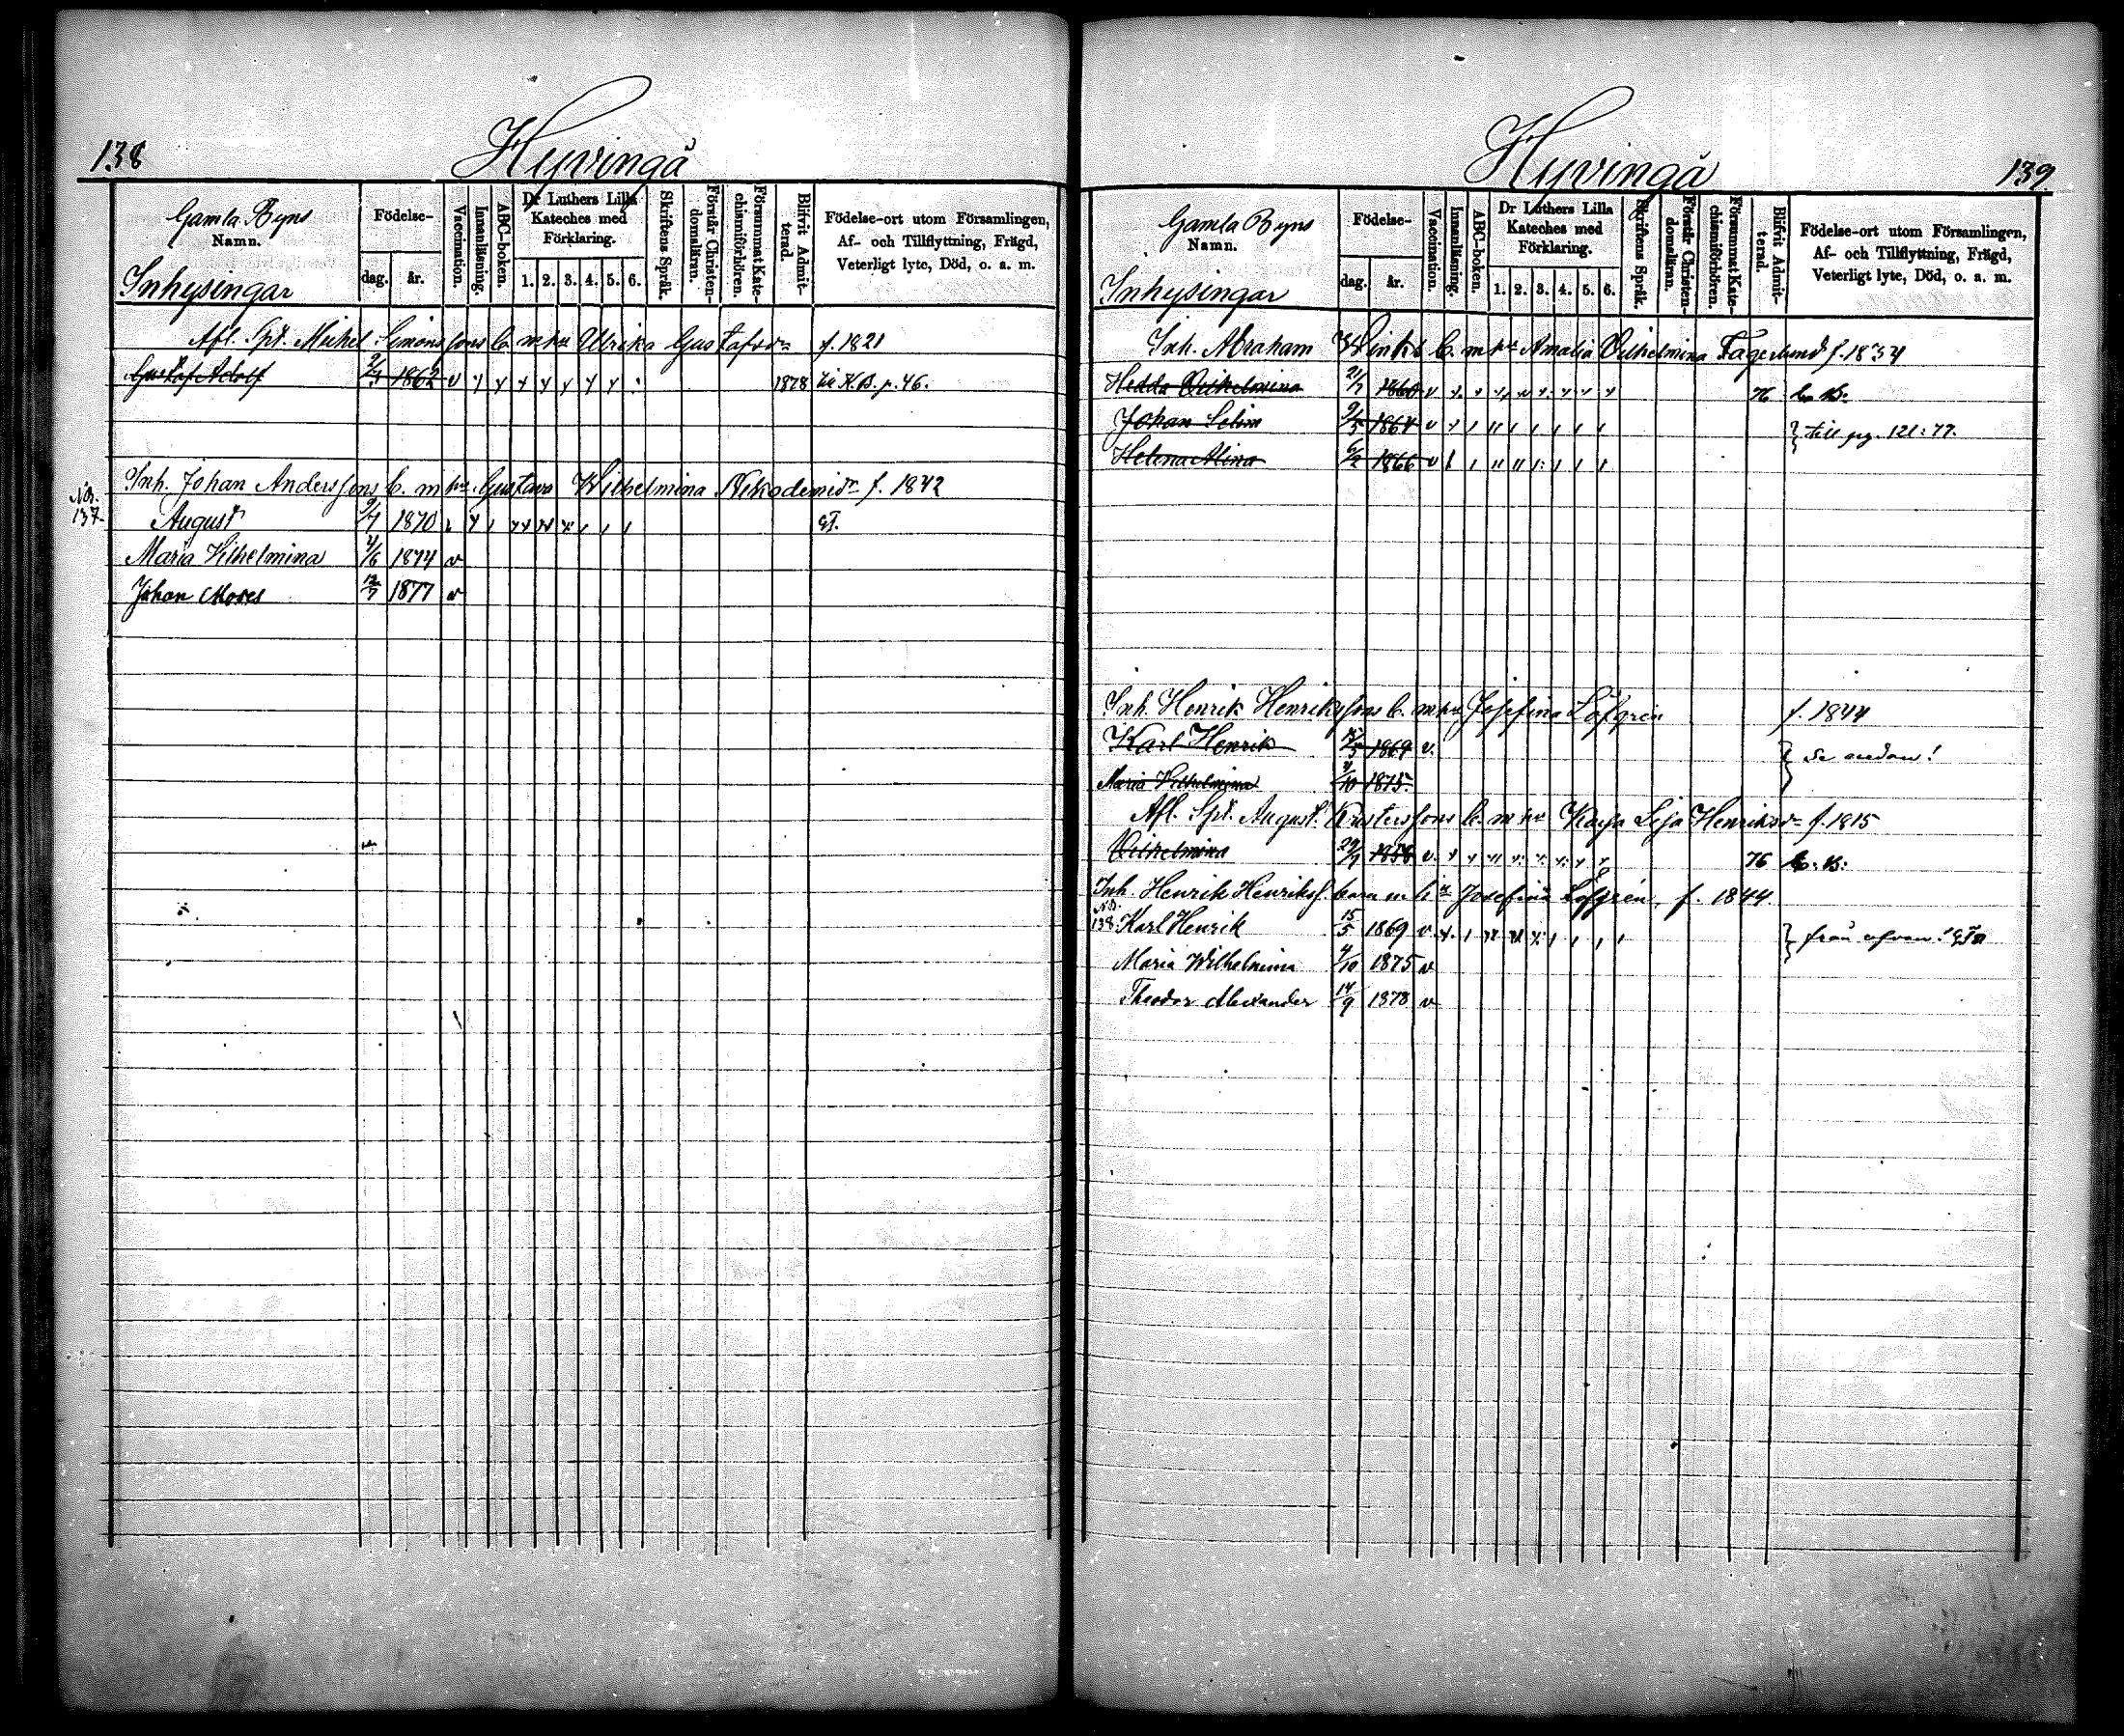 138
Hyvingå
Gamla Byns
Namn.
Inhysingar
Födelse-
dag.
år.
Vaccination.
Innanläsning.
ABC-boken.
Dr Luthers Lilla
Kateches med
Förklaring.
1. 2. 3. 4. 5. 6.
Skriftens Språk.
Förstår Christen-
domsläran.
Försummat Kate-
chismiförhören.
Blifvit Admit-
terad.
Födelse-ort utom Församlingen,
Af- och Tillflyttning, Frägd,
Veterligt lyte, Död, o. a. m.
Afl. Spt. Michel Simonssons b. m hu Ulrika Gustafsdr f. 1821
Gustaf Adolf 2/3 1862 v 1878 till K.B. p. 46.
Inh. Johan Anderssons b. m hu. Gustava Wilhelmina Nikodemidr f. 1842
No.
137
August 1870
Maria Vilhelmina 4/6 1874 v
Johan Moses 12/7 1877 v
139
Hyvingå
Gamla Byns
Namn.
Inhysingar
Födelse-
dag.
år.
Vaccination.
Innanläsning.
ABC-boken.
Dr Luthers Lilla
Kateches med
Förklaring.
1. 2. 3. 4. 5. 6.
Skriftens Språk.
Förstår Christen-
domsläran.
Försummat Kate-
chismiförhören.
Blifvit Admit-
terad.
Födelse-ort utom Församlingen,
Af- och Tillflyttning, Frägd,
Veterligt lyte, Död, o. a. m.
Inh. Abraham b. m hu Amalia Vilhelmina Fagerlund f. 1834
Hedda Vilhelmina 21/7 1860 v 76
Johan Selim 9/5 1864 v
Helena Alina 6/2 1866 v
} till pg. 121: 77.
Inh. Henrik Henrikssons b. m hu Josefina Löfgren f. 1844
Karl Henrik 15/5 1869 v.
Maria Vilhelmina 4/10 1875
} Se nedan!
Afl. Spt. August b. m hu Kaisa Lisa Henriksdr f. 1815
Vilhelmina 29/7 1858 v. 76
Inh. Henrik Henrikss. barn m. hu Josefina Löfgrén, f. 1844
No.
138 Karl Henrik 15/5 1869 v
Maria Wilhelmina 4/10 1875 v
} från ofvan!
Theodor Alexander 14/9 1878 v